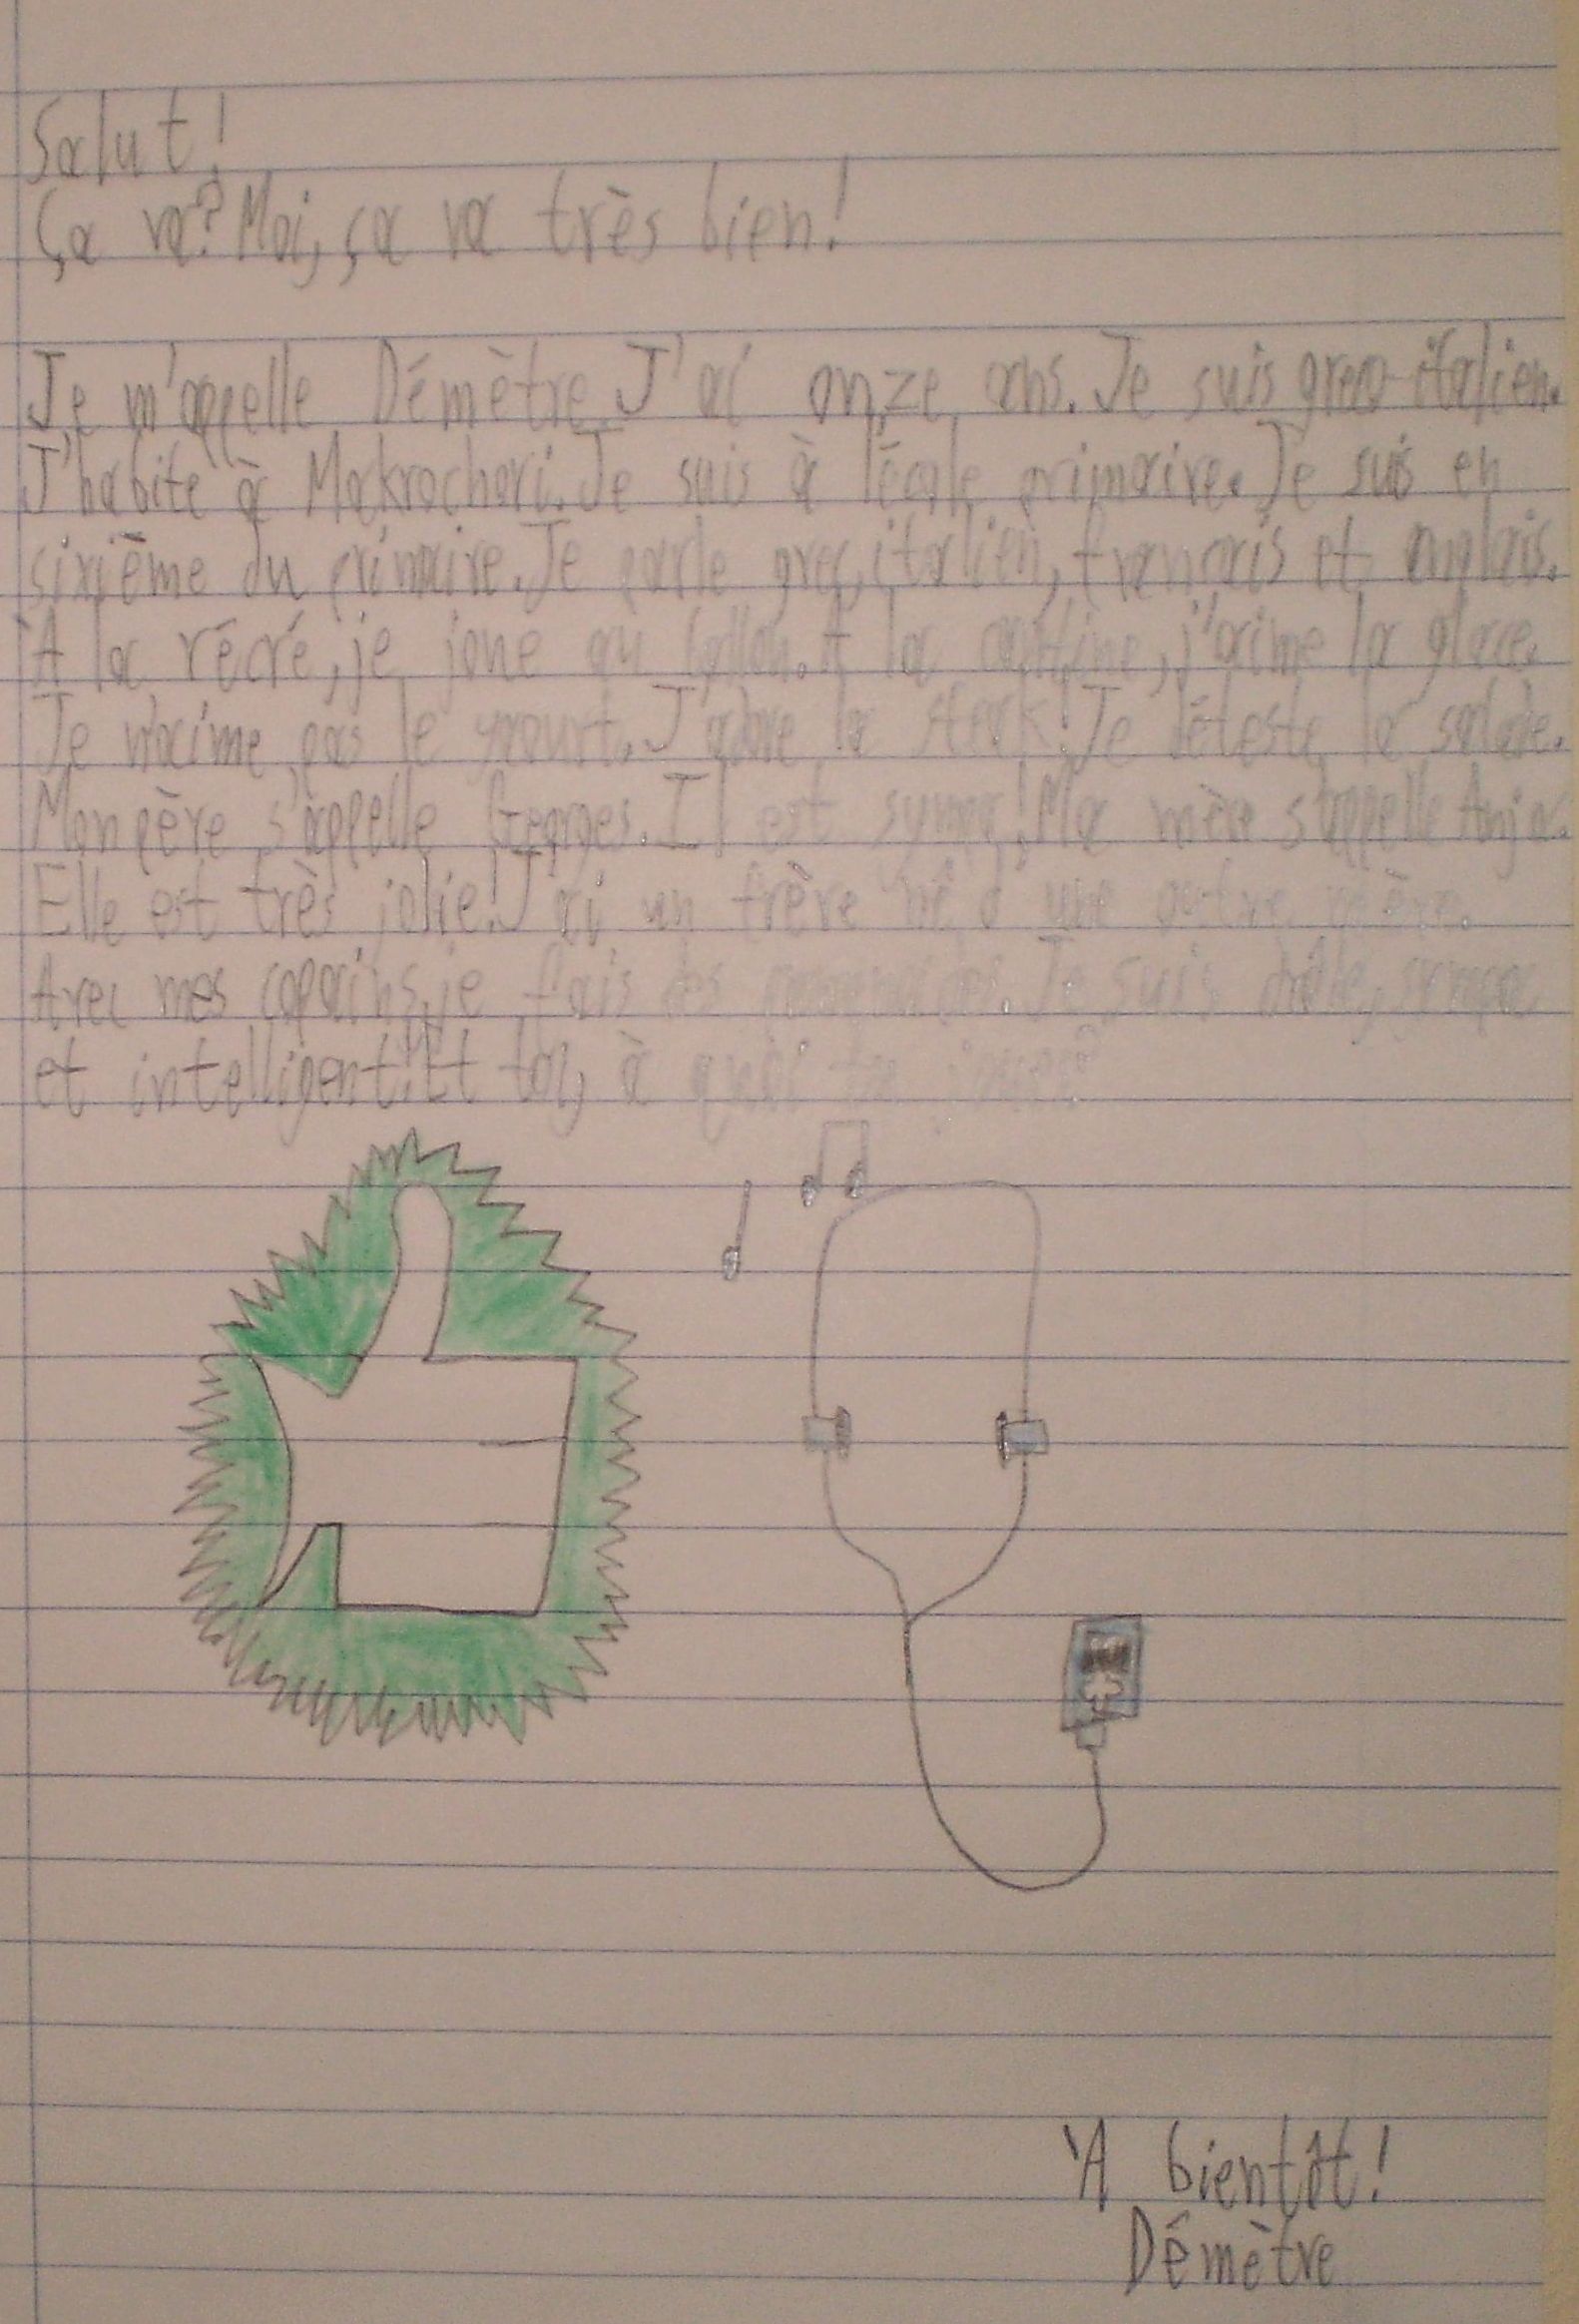 Salut!
Ça va? Moi, ça va très bien!
Je m'appelle Démètre. J'ai onze ans. Je suis greco-italien.
J'habite à Makrochori. Je suis à l'école primaire. Je suis en
sixième du primaire. Je parle grec, italien, français et anglais.
À la récré, je joue au ballon. A la cantine, j'aime la glace.
Je n'aime pas le yaourt. J'adore la steak! Je déteste la salade.
Mon père s'appelle Georges. Il est sympa! Ma mère s'appelle Anja.
Elle est très jolie! J'ai un frère né d'une autre mère.
Avec mes copains, je fais des promenades. Je suis drôle, sympa
et intelligent! Et toi, à quoi tu joues?
À bientôt!
Démètre